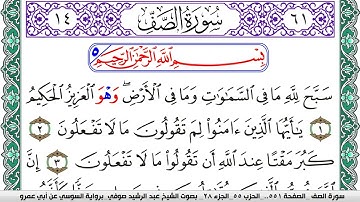 ٦١ سُورَةُ الصَّفِّ ١٤
بِسْمِ اللَّهِ الرَّحْمَٰنِ الرَّحِيمِ
سَبَّحَ لِلَّهِ مَا فِي السَّمَٰوَٰتِ وَمَا فِي الْأَرْضِ وَهْوَ الْعَزِيزُ الْحَكِيمُ
١ يَٰأَيُّهَا الَّذِينَ ءَامَنُوا لِمَ تَقُولُونَ مَا لَا تَفْعَلُونَ ٢
كَبُرَ مَقْتًا عِندَ اللَّهِ أَن تَقُولُوا مَا لَا تَفْعَلُونَ ٣
سورة الصف الصفحة ٥٥١ .. الحزب ٥٥ الجزء ٢٨ بصوت الشيخ عبد الرشيد صوفي برواية السوسي عن أبي عمرو